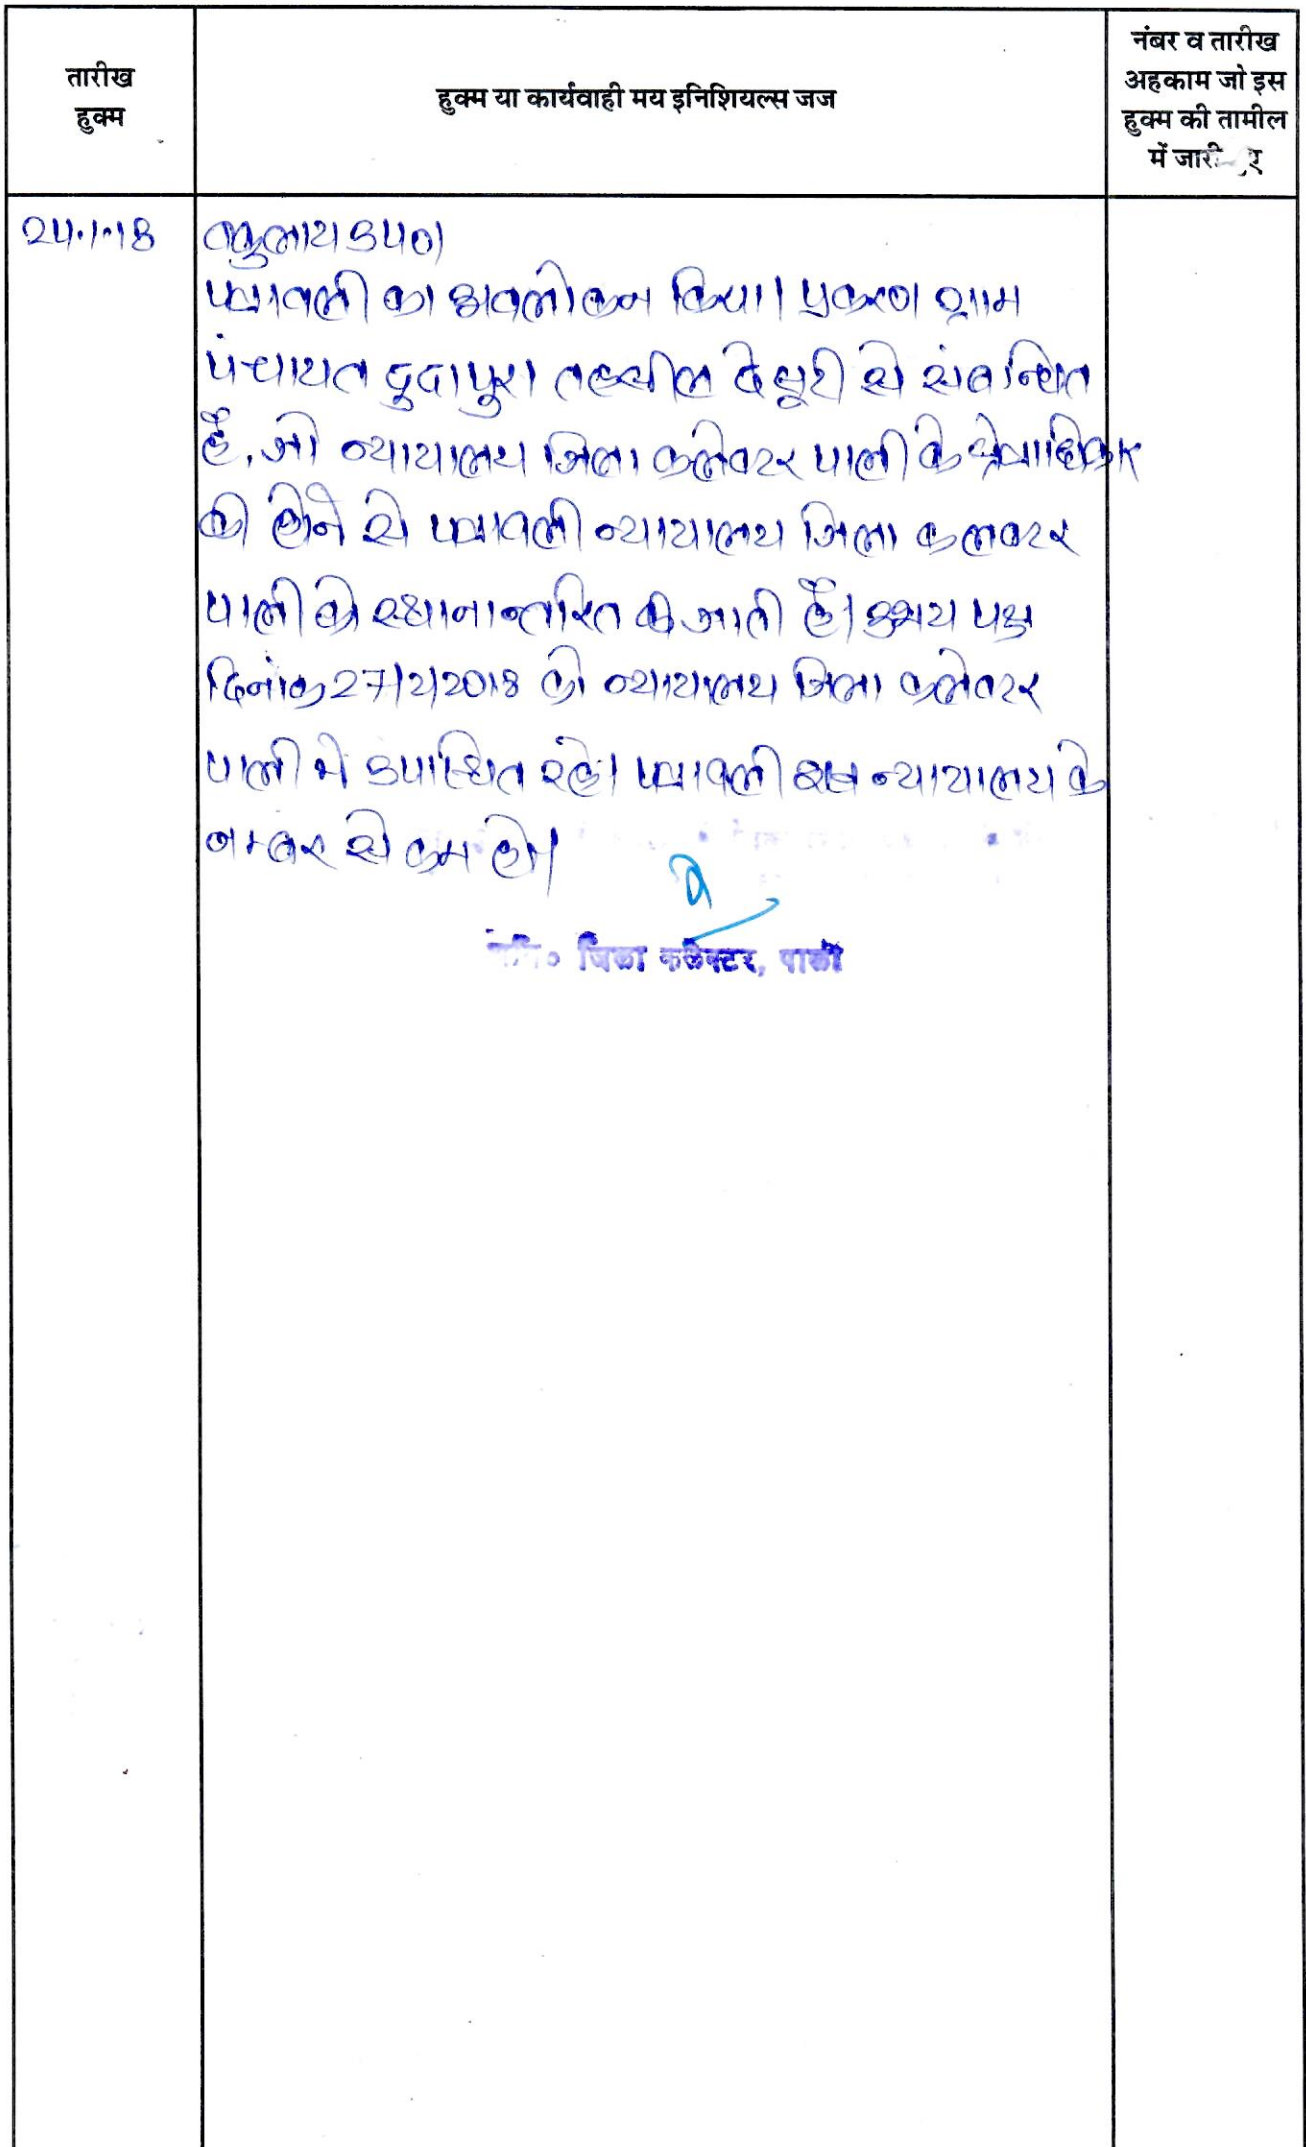 तारीख
हुक्म
हुक्म या कार्यवाही मय इनिशियल्स जज
नंबर व तारीख
अहकाम जो इस
हुक्म की तामील
में जारी
24.1.18
वकुलाय उप०।
पत्रावली का अवलोकन किया। प्रकरण ग्राम
पंचायत दुदापुरा तहसील देसूरी से संबन्धित
है, जो न्यायालय जिला कलेक्टर पाली के क्षेत्राधिकार
की होने से पत्रावली न्यायालय जिला कलक्टर
पाली को स्थानान्तरित की जाती है। उभय पक्ष
दिनांक 27/2/2018 को न्यायालय जिला कलेक्टर
पाली मे उपस्थित रहे। पत्रावली इस न्यायालय के
नम्बर से कम हो।
जिला कलेक्टर, पाली